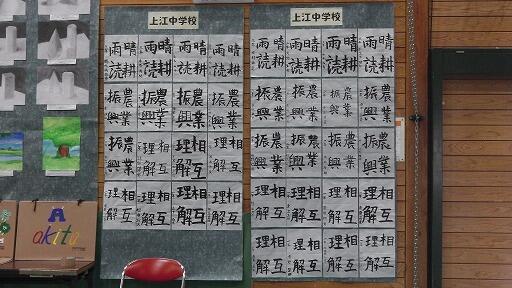 上江中学校
晴耕雨読
晴耕雨読
晴耕雨読
晴耕雨読
農業振興
農業振興
農業振興
農業振興
農業振興
相互理解
相互理解
相互理解
相互理解
相互理解
相互理解
相互理解
上江中学校
晴耕雨読
晴耕雨読
晴耕雨読
晴耕雨読
農業振興
農業振興
農業振興
農業振興
農業振興
農業振興
農業振興
農業振興
相互理解
相互理解
相互理解
相互理解
相互理解
相互理解
相互理解
相互理解
A
akita